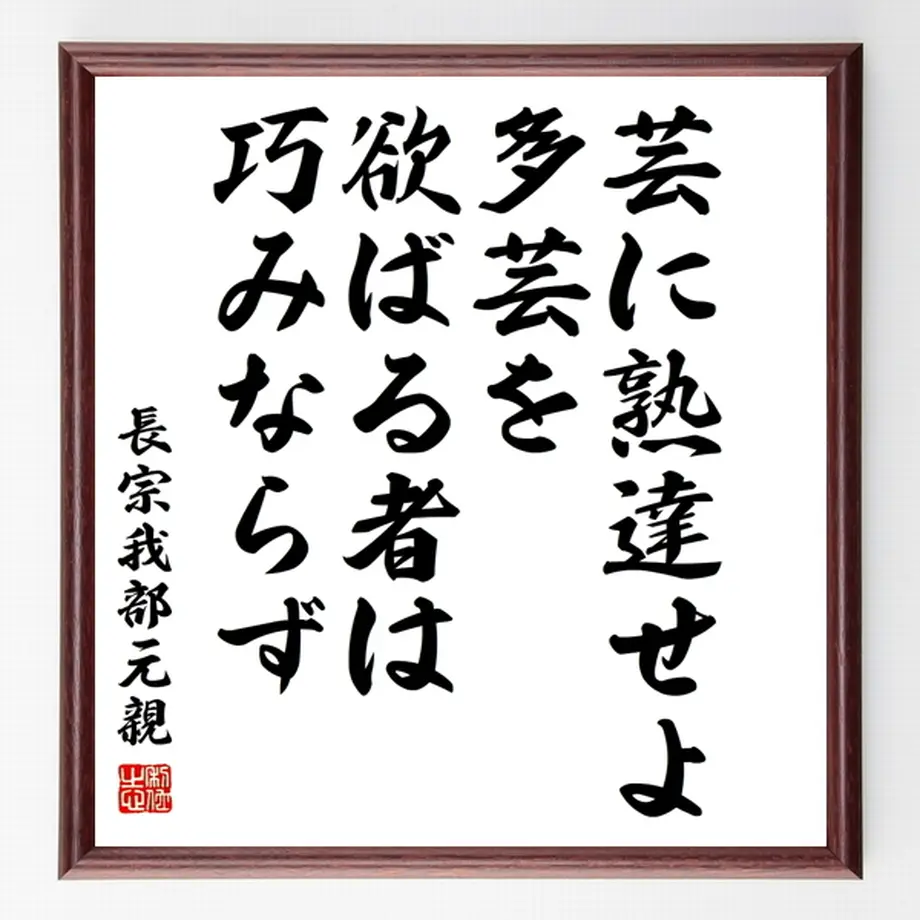 芸に熟達せよ
多芸を
欲ばる者は
巧みならず
長宗我部元親